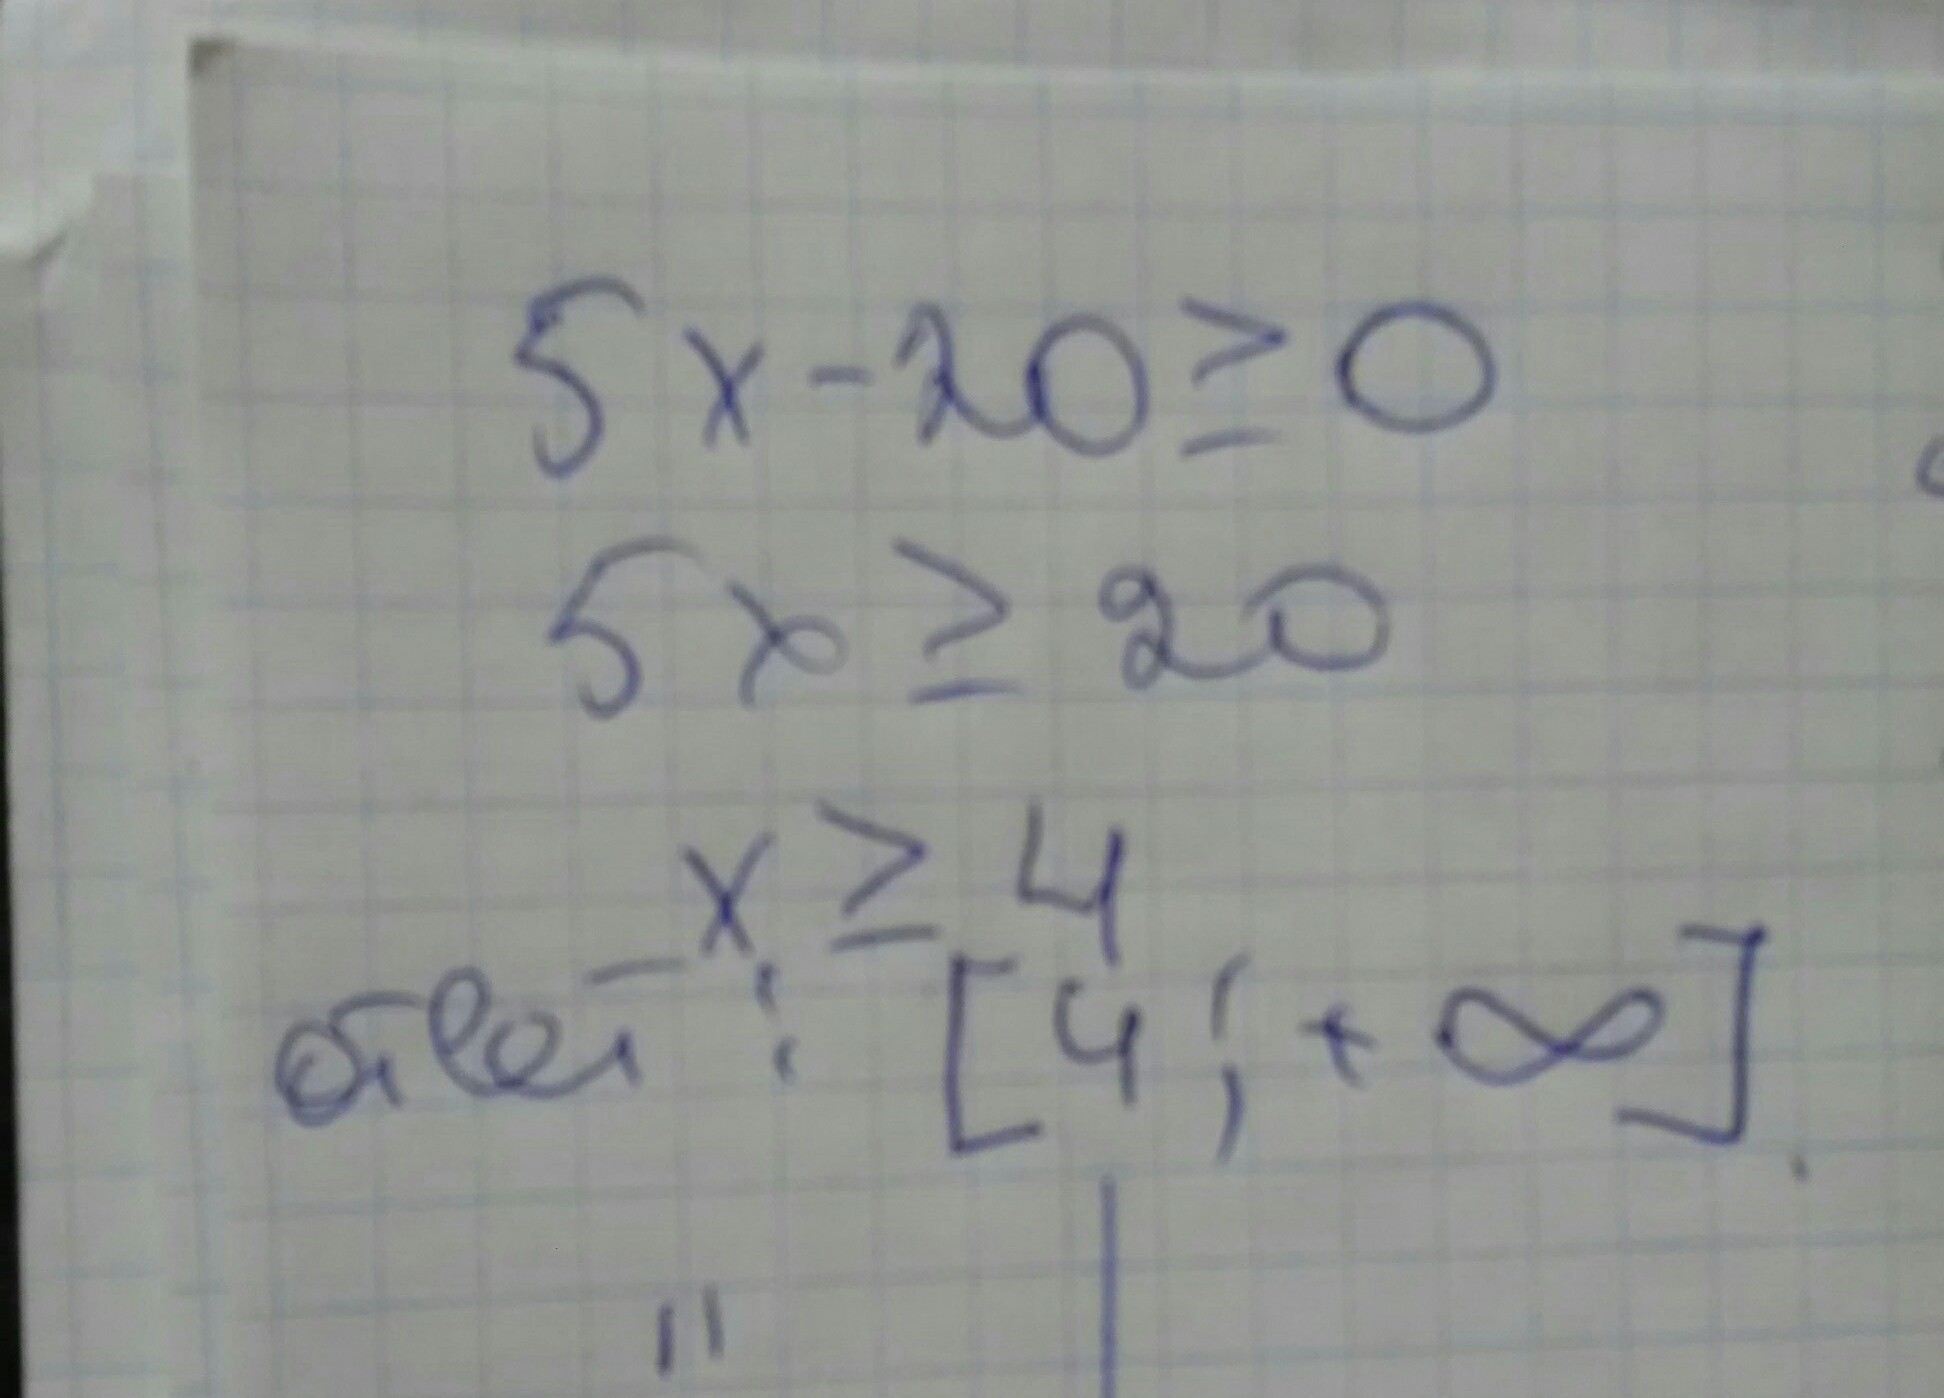 5x-20≥0
5x ≥ 20
x ≥ 4
ответ: [4; +∞].
"